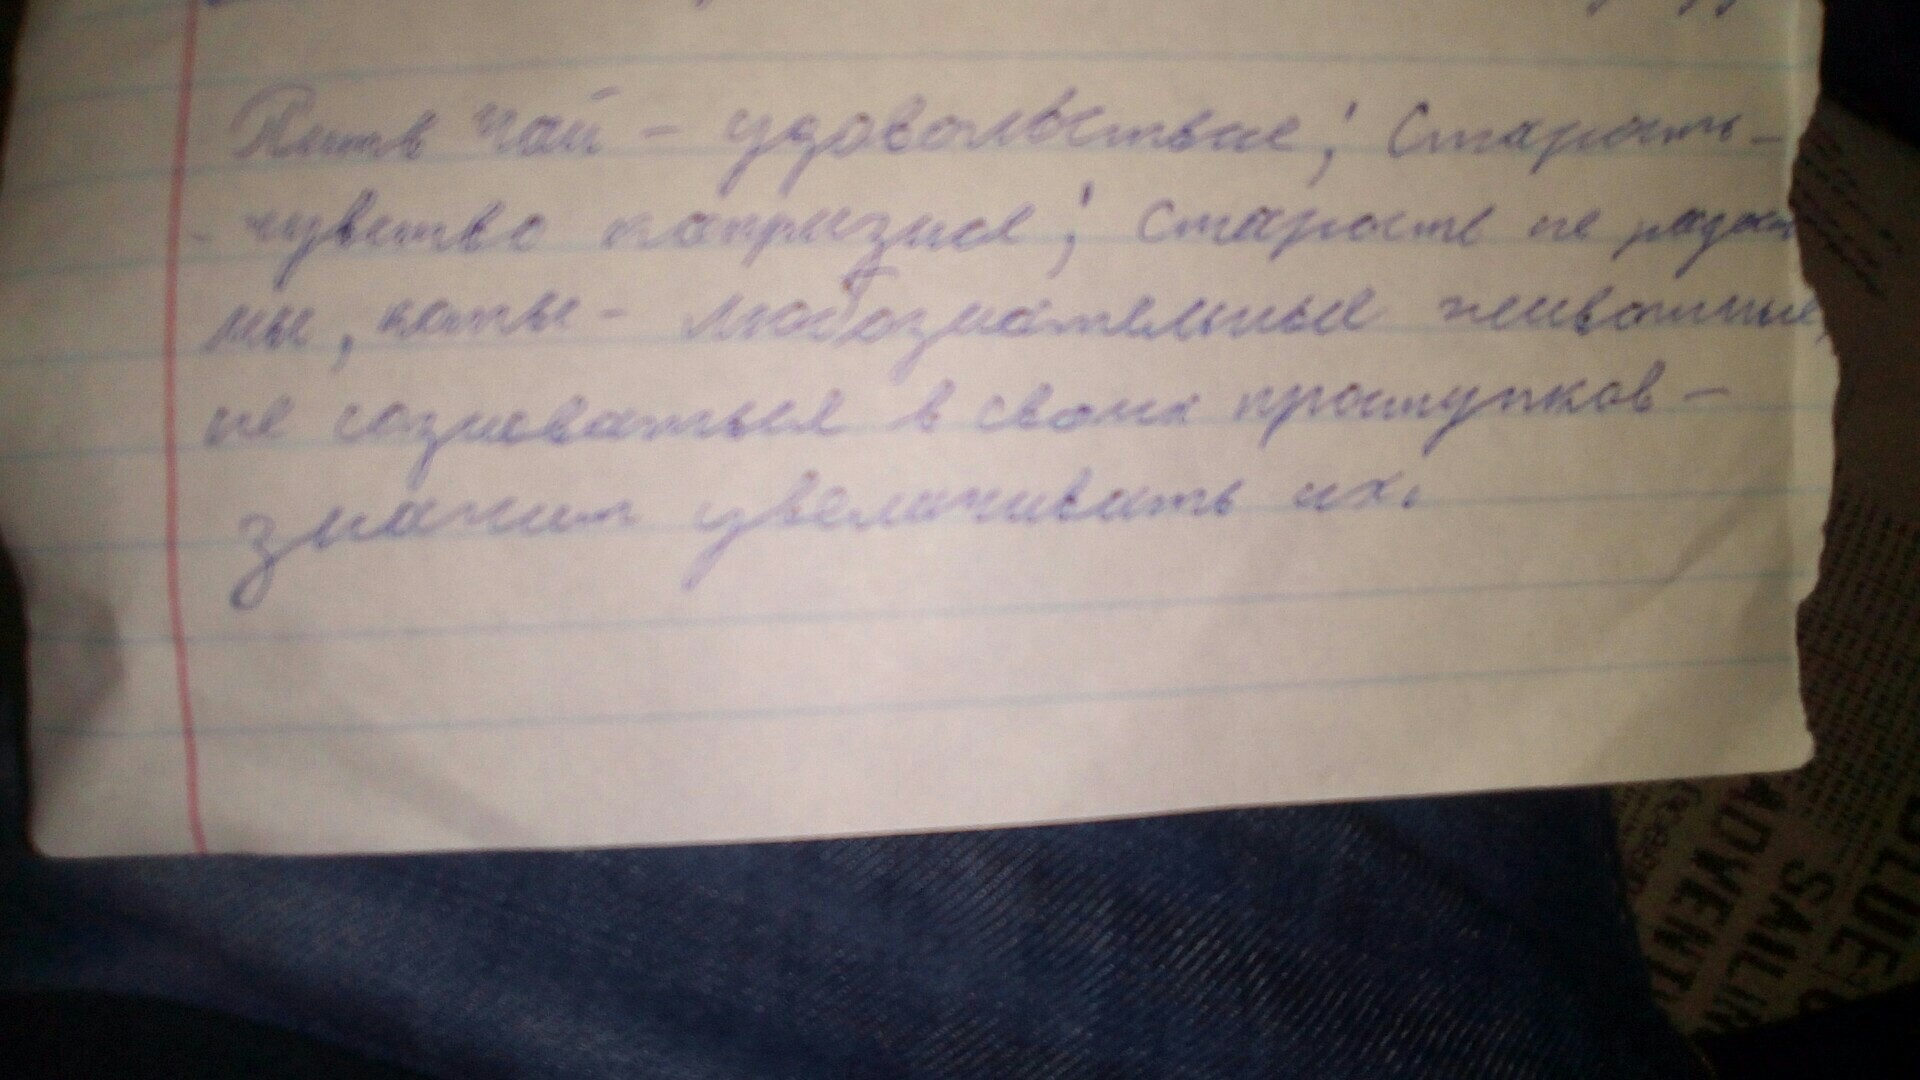 Пить чай - удовольствие; Старость -
- чувство капризное; Старость не радост
мы, коты - любознательные животные,
не сознаваться в своих проступков -
значит увеличивать их.
ADVENT
SAILIN